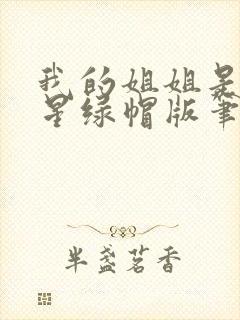 我的姐姐是
星绿帽版笔
半盏茗香